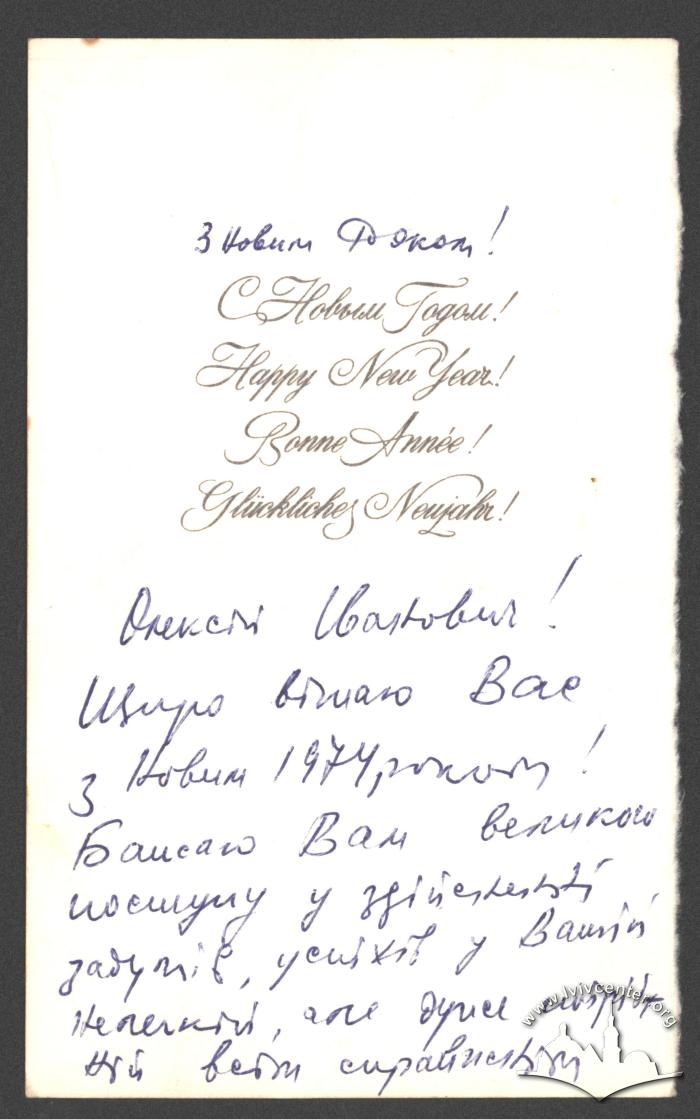 З Новим Роком!
С Новым Годом!
Happy New Year!
Bonne Année!
Glückliches Neujahr!
Олексій Іванович!
Щиро вітаю Вас
з Новим 1974 роком!
Бажаю Вам великого
поступу у здійсненні
задумів, успіхів у Вашій
нелегкій, але дуже потріб
ній всім
www.lvivcenter.org